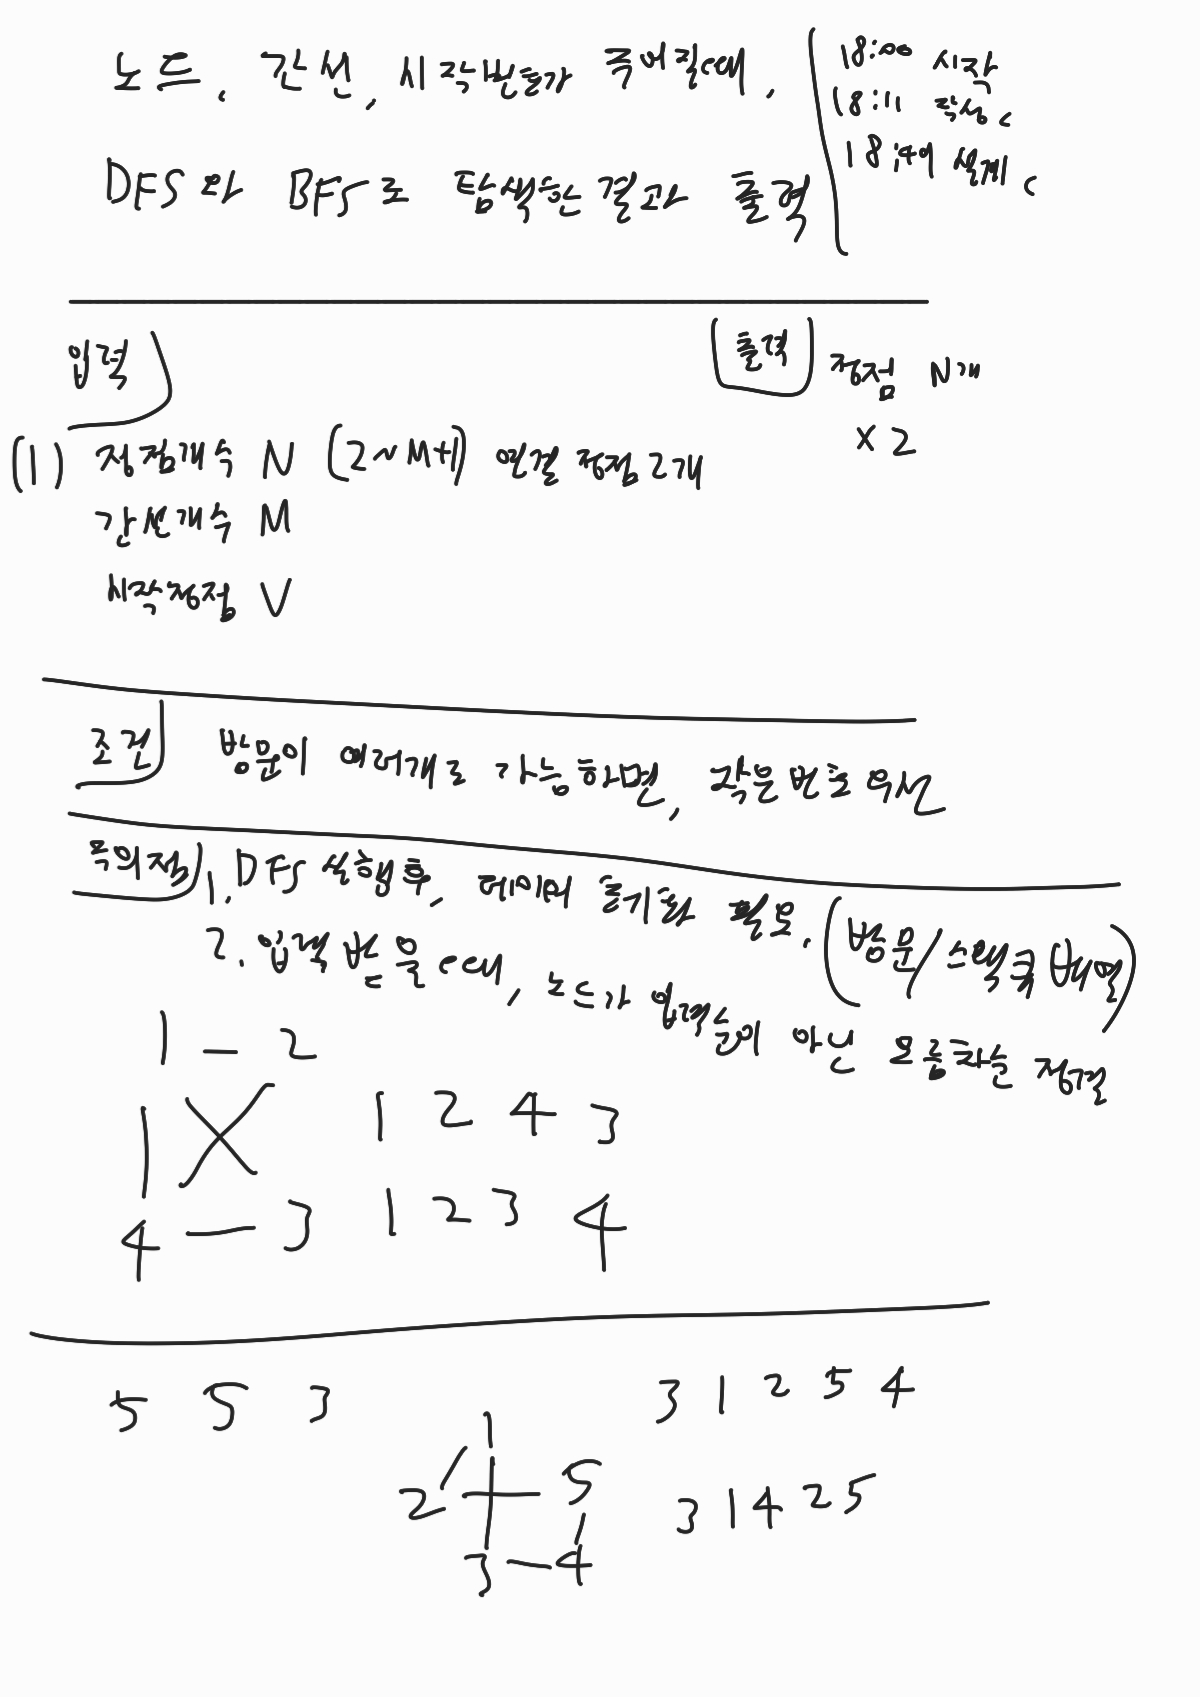 노드, 간선, 시작번호가 주어질때,
DFS와 BFS로 탐색한 결과 출력
18:00 시작
18:11 작성 <
18:40 설계 <
입력
(1) 정점개수 N (2~M+1) 연결 정점 2개
간선개수 M
시작정점 V
출력
정점 N개
x 2
조건 방문이 여러개로 가능하면, 작은 번호 우선
주의점 1. DFS 실행후, 데이터 초기화 필요. (방문/스택큐 배열)
2. 입력 받을때, 노드가 입력순이 아닌 오름차순 정렬
1 - 2
4 - 3
1 2 4 3
1 2 3 4
5 5 3
1
2 5
3 - 4
3 1 2 5 4
3 1 4 2 5